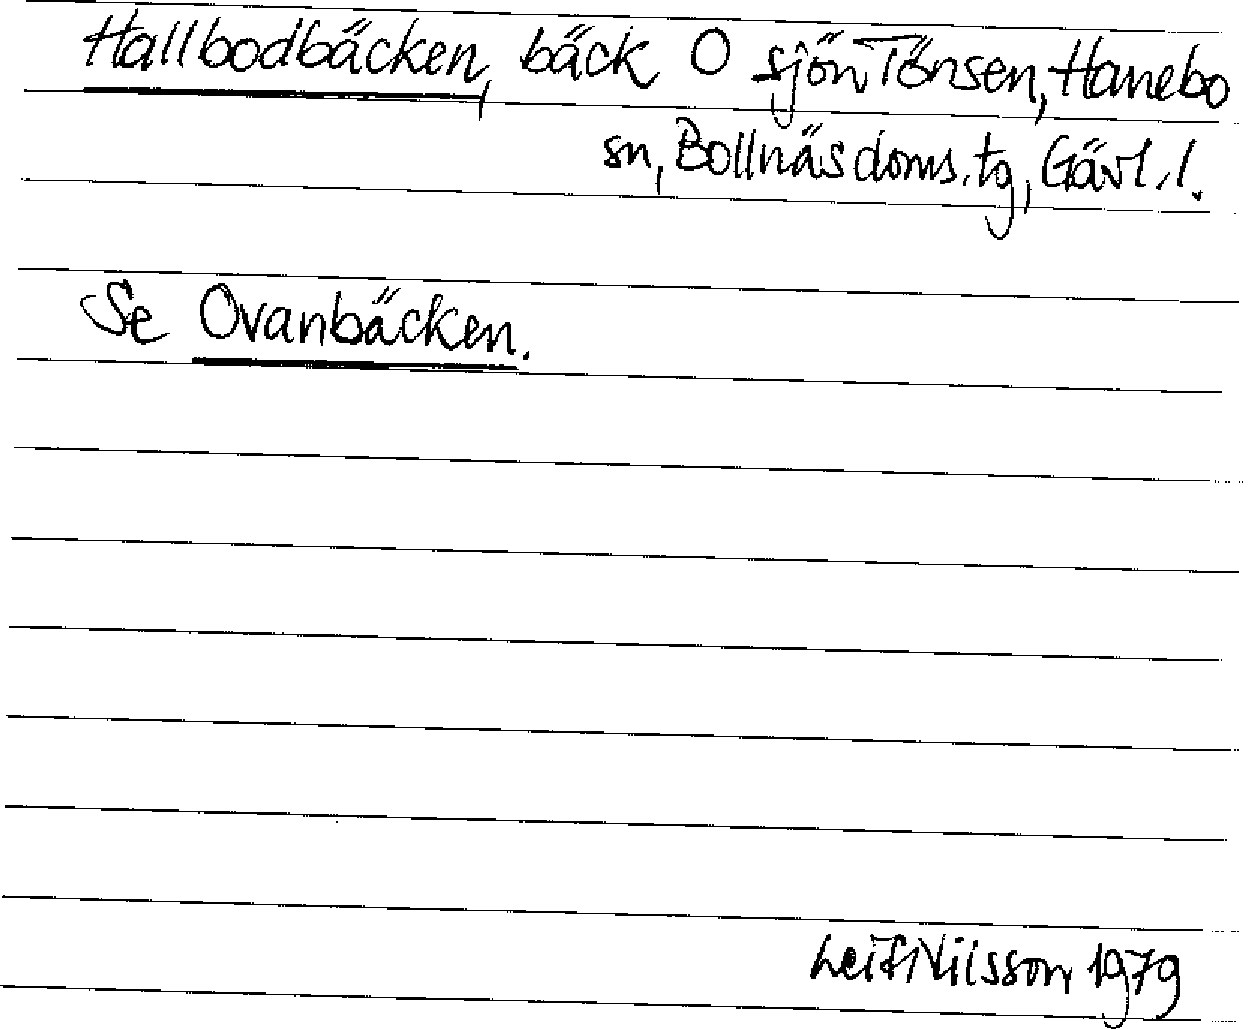 Hallbodbäcken, bäck O sjön Tönsen, Hanebo
sn, Bollnäs doms.tg, Gävl.l.
Se Ovanbäcken.
Leif Nilsson 1979